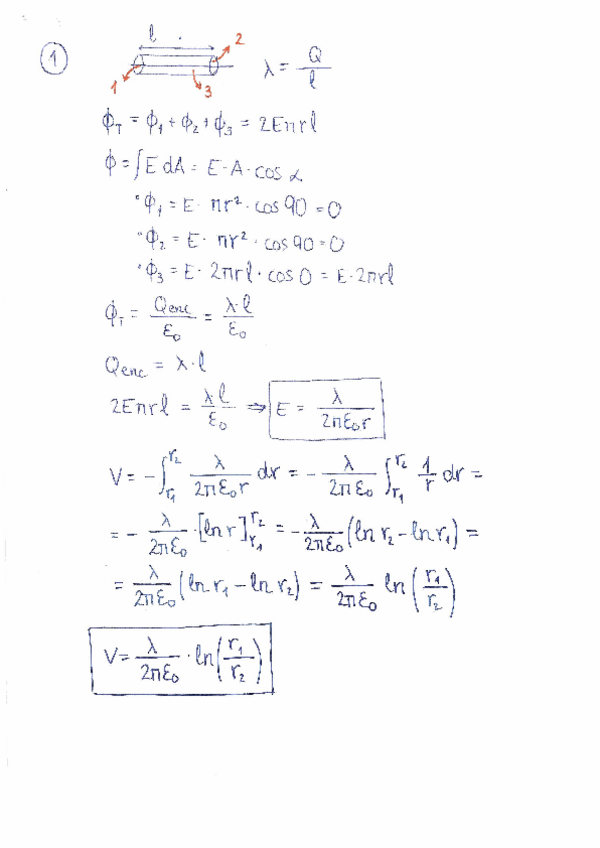 1
l
2
λ = Q/l
1
3
ϕ_T = ϕ₁ + ϕ₂ + ϕ₃ = 2Eπrl
ϕ = ∫E dA = E·A·cos α
• ϕ₁ = E· πr²· cos 90 = 0
• ϕ₂ = E· πr²· cos 90 = 0
• ϕ₃ = E· 2πrl· cos 0 = E·2πrl
ϕ_T = Q_enc/ε₀ = λ·l/ε₀
Q_enc = λ·l
2Eπrl = λl/ε₀ ⇒ E = λ/(2πε₀r)
V = -∫_{r₁}^{r₂} λ/(2πε₀r) dr = - λ/(2πε₀) ∫_{r₁}^{r₂} 1/r dr =
= - λ/(2πε₀) ·[ln r]_{r₁}^{r₂} = - λ/(2πε₀) (ln r₂ - ln r₁) =
= λ/(2πε₀) (ln r₁ - ln r₂) = λ/(2πε₀) ln (r₁/r₂)
V = λ/(2πε₀) · ln(r₁/r₂)